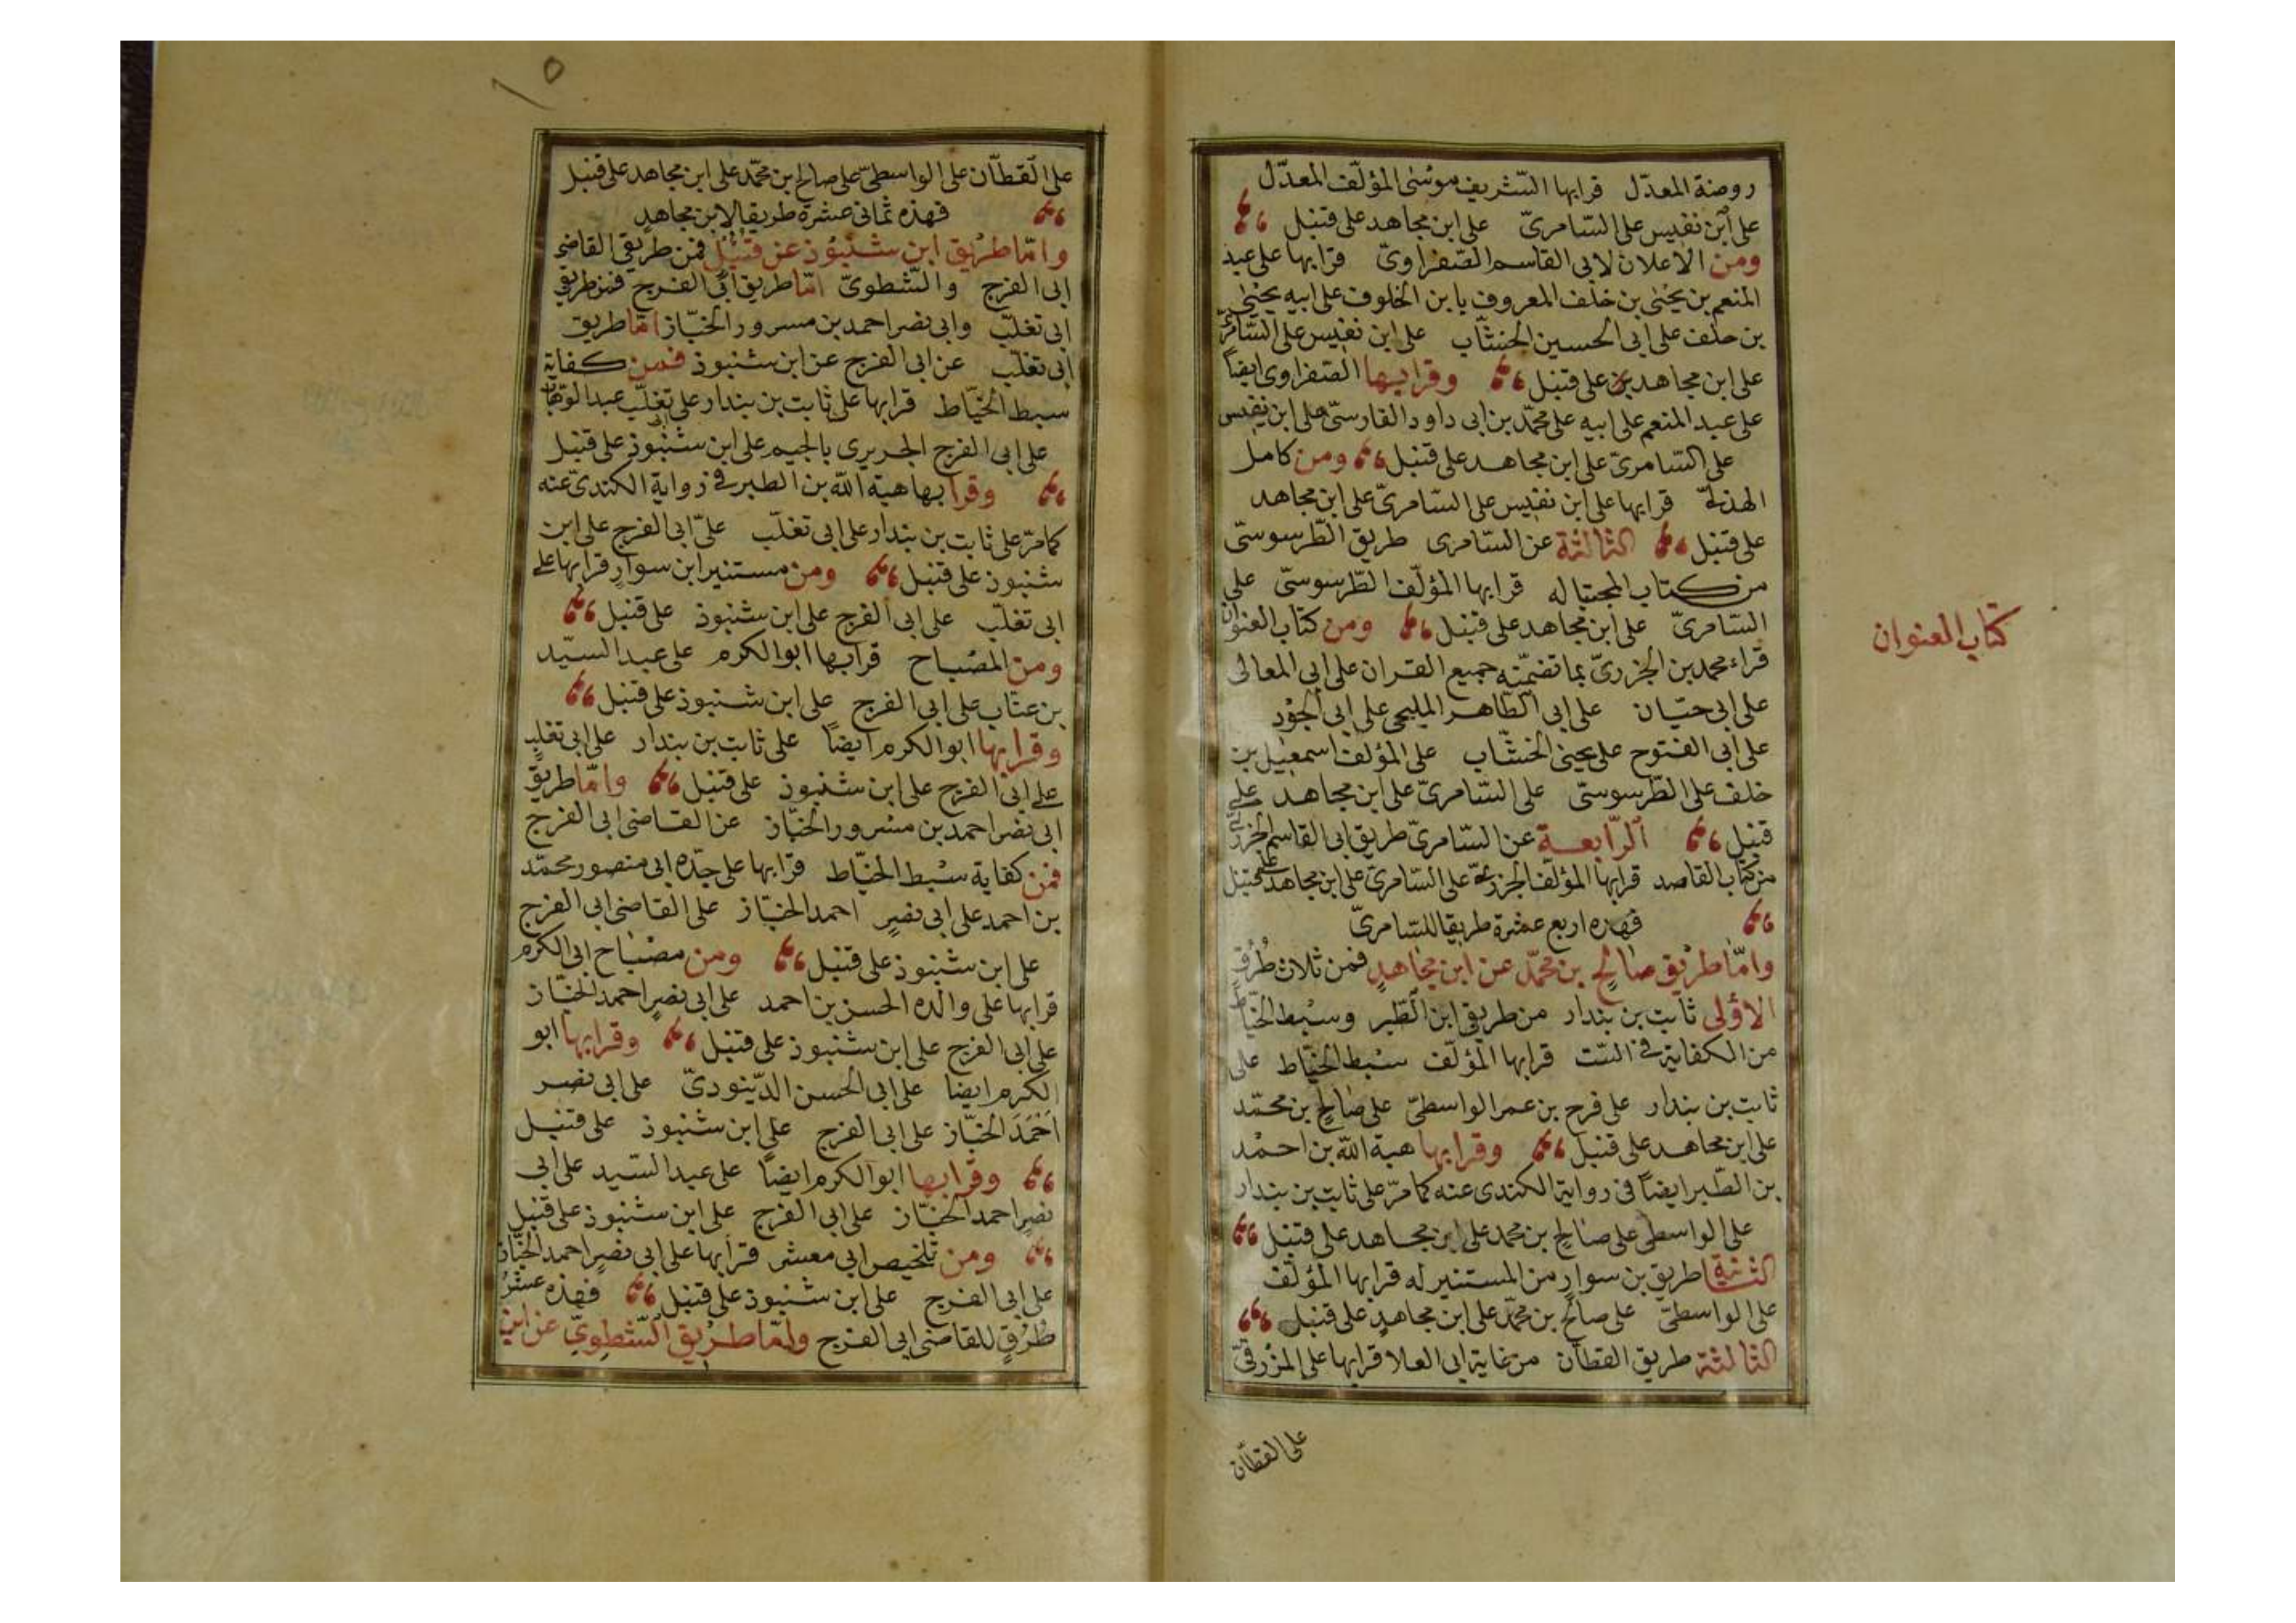 روضة المعدّل قرابها الشريف موسى المؤلّف المعدّل
على ابن نفيس على السّامرىّ على ابن مجاهد على قنبل
ومن الاعلان لابى القاسم الصّفراوىّ قرابها على عبد
المنعم بن يحيى بن خلف المعروف يابن الخلوف على ابيه يحيى
بن خلف على ابى الحسين الخشّاب على ابن نفيس على السّامرىّ
على ابن مجاهد على قنبل وقرابها الصفراوى ايضاً
على عبد المنعم على ابيه على محمّد بن ابى داود الفارسىّ على ابن نفيس
على السّامرىّ على ابن مجاهد على قنبل ومن كامل
الهذلىّ قرابها على ابن نفيس على السّامرىّ على ابن مجاهد
على قنبل الثالثة عن السّامرى طريق الطّرسوسىّ
من كتاب المجتبا له قرابها المؤلّف الطّرسوسىّ على
السّامرىّ على ابن مجاهد على قنبل ومن كتاب العنوان
كتاب العنوان
قراء محمد بن الجزرىّ بما تضمّنه جميع القران على ابى المعالى
على ابى حيّان على ابى الطّاهر المليجى على ابى الجود
على ابى الفتوح على يحيى الخشّاب على المؤلف اسمعيل بن
خلف على الطّرسوسىّ على السّامرىّ على ابن مجاهد على
قنبل الرّابعة عن السّامرىّ طريق ابى القاسم الخزرجىّ
من كتاب القاصد قرابها المؤلّف الخزرجىّ على السّامرىّ على ابن مجاهد على قنبل
فهذه اربع عشرة طريقا للسّامرىّ
وامّا طريق صالح بن محمّد عن ابن مجاهد فمن ثلاث طرق
الاولى ثابت بن بندار من طريق ابن الطّبر وسبط الخيّاط
من الكفاية فى السّت قرابها المؤلّف سبط الخيّاط على
ثابت بن بندار على فرح بن عمر الواسطىّ على صالح بن محمّد
على ابن مجاهد على قنبل وقرابها هبة الله بن احمد
بن الطّبر ايضاً فى رواية الكندى عنه كما مرّ على ثابت بن بندار
على الواسطى على صالح بن محمد على ابن مجاهد على قنبل
الثانية طريق بن سوار من المستنير له قرابها المؤلّف
على الواسطىّ على صالح بن محمّد على ابن مجاهد على قنبل
الثالثة طريق القطّان من غاية ابى العلا قرابها على المزرفىّ
على القطّان
١٥
على القطّان على الواسطىّ على صالح ابن محمّد على ابن مجاهد على قنبل
فهذه ثمانى عشرة طريقا لابن مجاهد
وامّا طريق ابن شنبوذ عن قنبل فمن طريقى القاضى
ابى الفرج والشّطوىّ امّا طريق ابى الفرج فمن طريقى
ابى تغلب وابى نصر احمد بن مسرور الخبّاز امّا طريق
ابى تغلب عن ابى الفرج عن ابن شنبوذ فمن كفاية
سبط الخيّاط قرابها على ثابت بن بندار على ابى تغلب عبد الوهّاب
على ابى الفرج الجريرى بالجيم على ابن شنبوذ على قنبل
وقرابها هبة الله بن الطبر فى رواية الكندى عنه
كما مرّ على ثابت بن بندار على ابى تغلب على ابى الفرج على ابن
شنبوذ على قنبل ومن مستنير ابن سوار قرابها على
ابى تغلب على ابى الفرج على ابن شنبوذ على قنبل
ومن المصباح قرابها ابو الكرم على عبد السيّد
بن عتّاب على ابى الفرج على ابن شنبوذ على قنبل
وقرابها ابو الكرم ايضاً على ثابت بن بندار على ابى تغلب
على ابى الفرج على ابن شنبوذ على قنبل وامّا طريق
ابى نصر احمد بن مسرور الخبّاز عن القاضى ابى الفرج
فمن كفاية سبط الخيّاط قرابها على جدّه ابى منصور محمّد
بن احمد على ابى نصر احمد الخبّاز على القاضى ابى الفرج
على ابن شنبوذ على قنبل ومن مصباح ابى الكرم
قرابها على والده الحسن بن احمد على ابى نصر احمد الخبّاز
على ابى الفرج على ابن شنبوذ على قنبل وقرابها ابو
الكرم ايضا على ابى الحسن الدّينورىّ على ابى نصر
احمد الخبّاز على ابى الفرج على ابن شنبوذ على قنبل
وقرابها ابو الكرم ايضاً على عبد السّيد على ابى
نصر احمد الخبّاز على ابى الفرج على ابن شنبوذ على قنبل
ومن تلخيص ابى معشر قرابها على ابى نصر احمد الخبّاز
على ابى الفرج على ابن شنبوذ على قنبل فهذه عشر
طرق للقاضى ابى الفرج وامّا طريق الشّطوىّ عن ابن